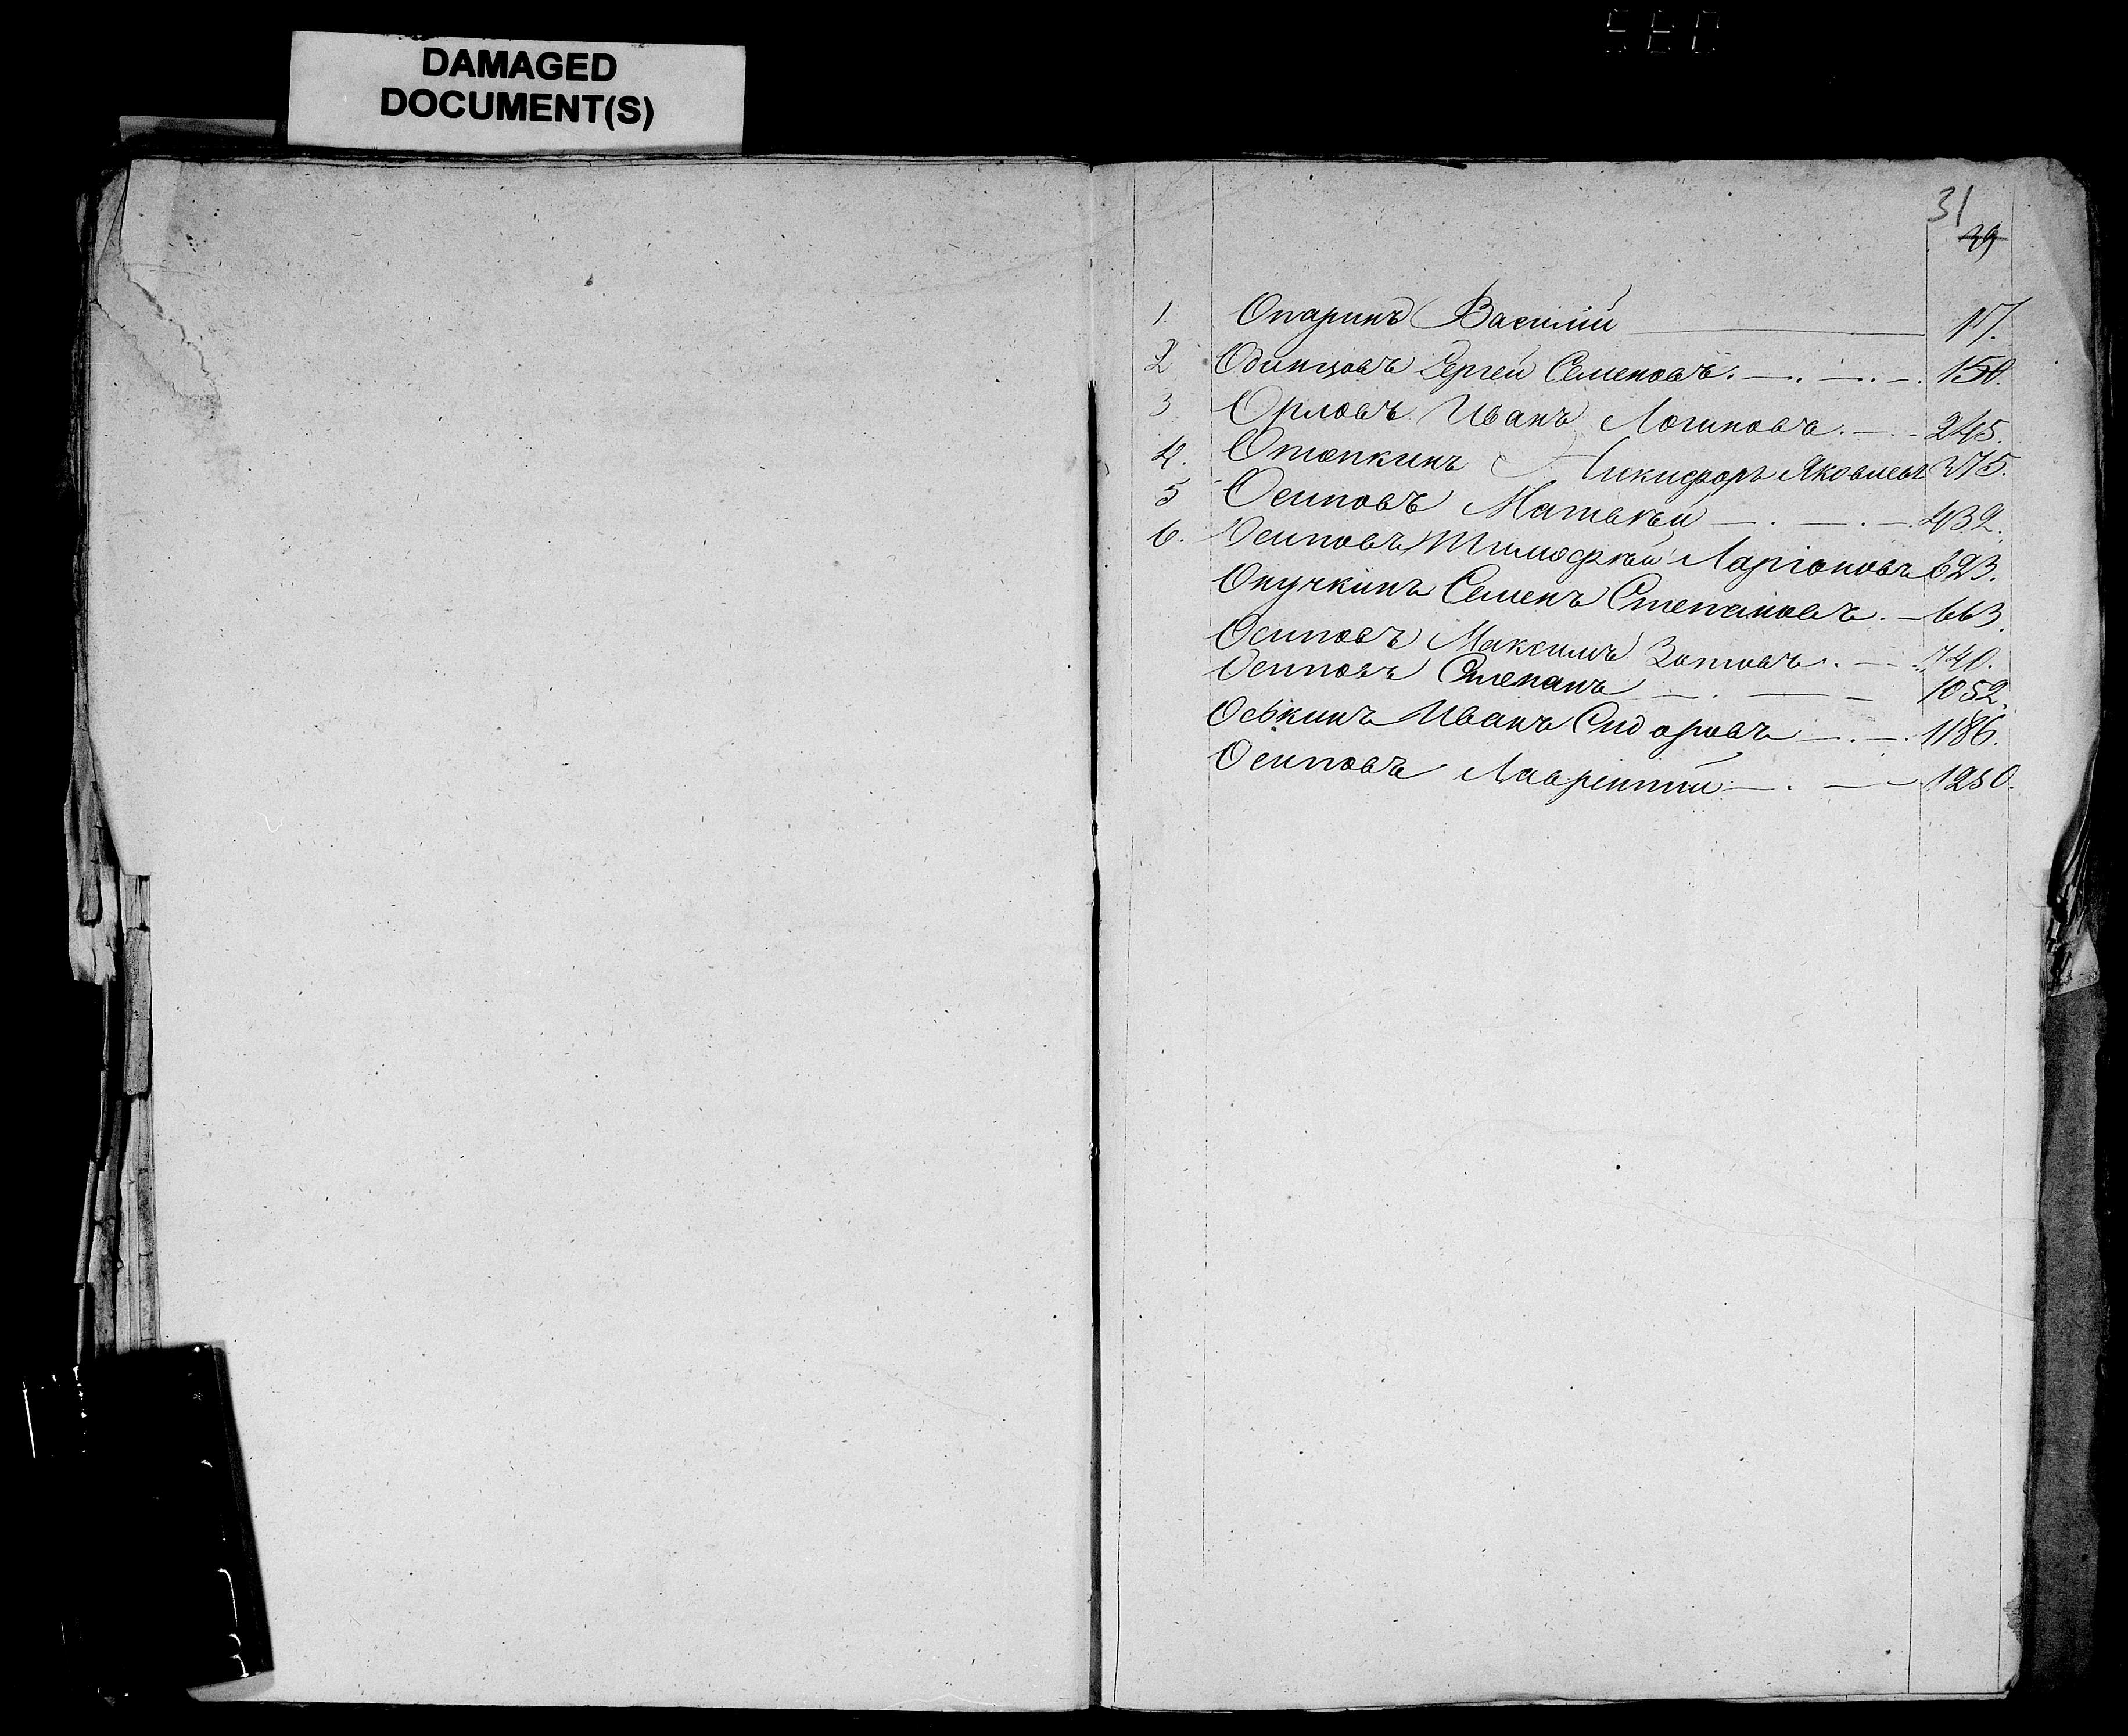 DAMAGED
DOCUMENT(S)
31
39
1. Опаринъ Василій 17.
2 Одинцовъ Сергей Семеновъ. 150.
3 Орловъ Иванъ Логиновъ. 245.
4. Отопкинъ Никифоръ Яковлевъ 375.
5 Осиповъ Матвѣй 432.
6. Осиповъ Тимофѣй Ларіоновъ 623.
Опучкинъ Семенъ Степановъ. 663.
Осиповъ Максимъ Зотовъ. 740.
Осиповъ Степанъ 1052.
Оськинъ Иванъ Сидоровъ 1186.
Осиповъ Лаврентій 1250.